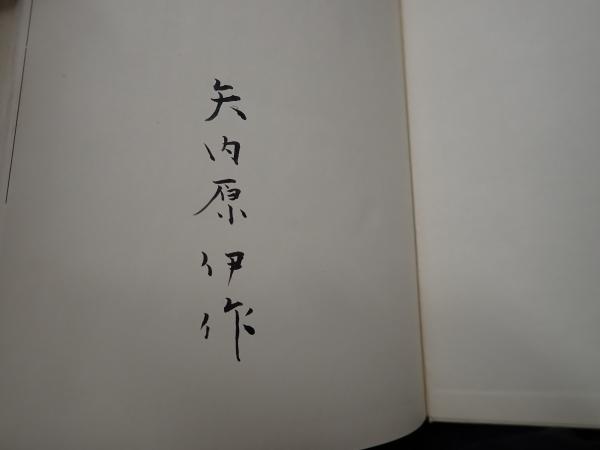 矢内原伊作